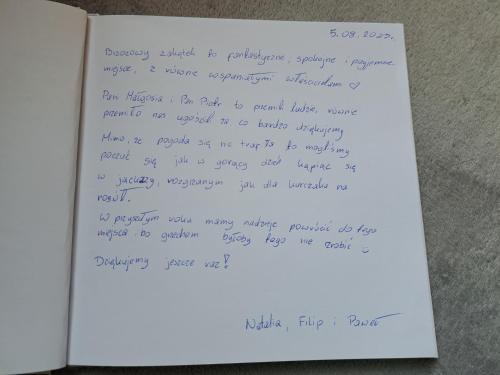 5.08.2023r.
Brzozowy zakątek to fantastyczne, spokojne i przyjemne
miejsce, z równie wspaniałymi właścicielami ♡
Pani Małgosia i Pan Piotr to przemili ludzie, równie
przemiło nas ugościli za co bardzo dziękujemy
Mimo, że pogoda się nie trafiła to mogliśmy
poczuć się jak w gorący dzień kąpiąc się
w jacuzzy, rozgrzanym jak dla kurczaka na
rosół.
W przyszłym roku mamy nadzieję powrócić do tego
miejsca bo grzechem byłoby tego nie zrobić
Dziękujemy jeszcze raz!
Natalia, Filip i Paweł